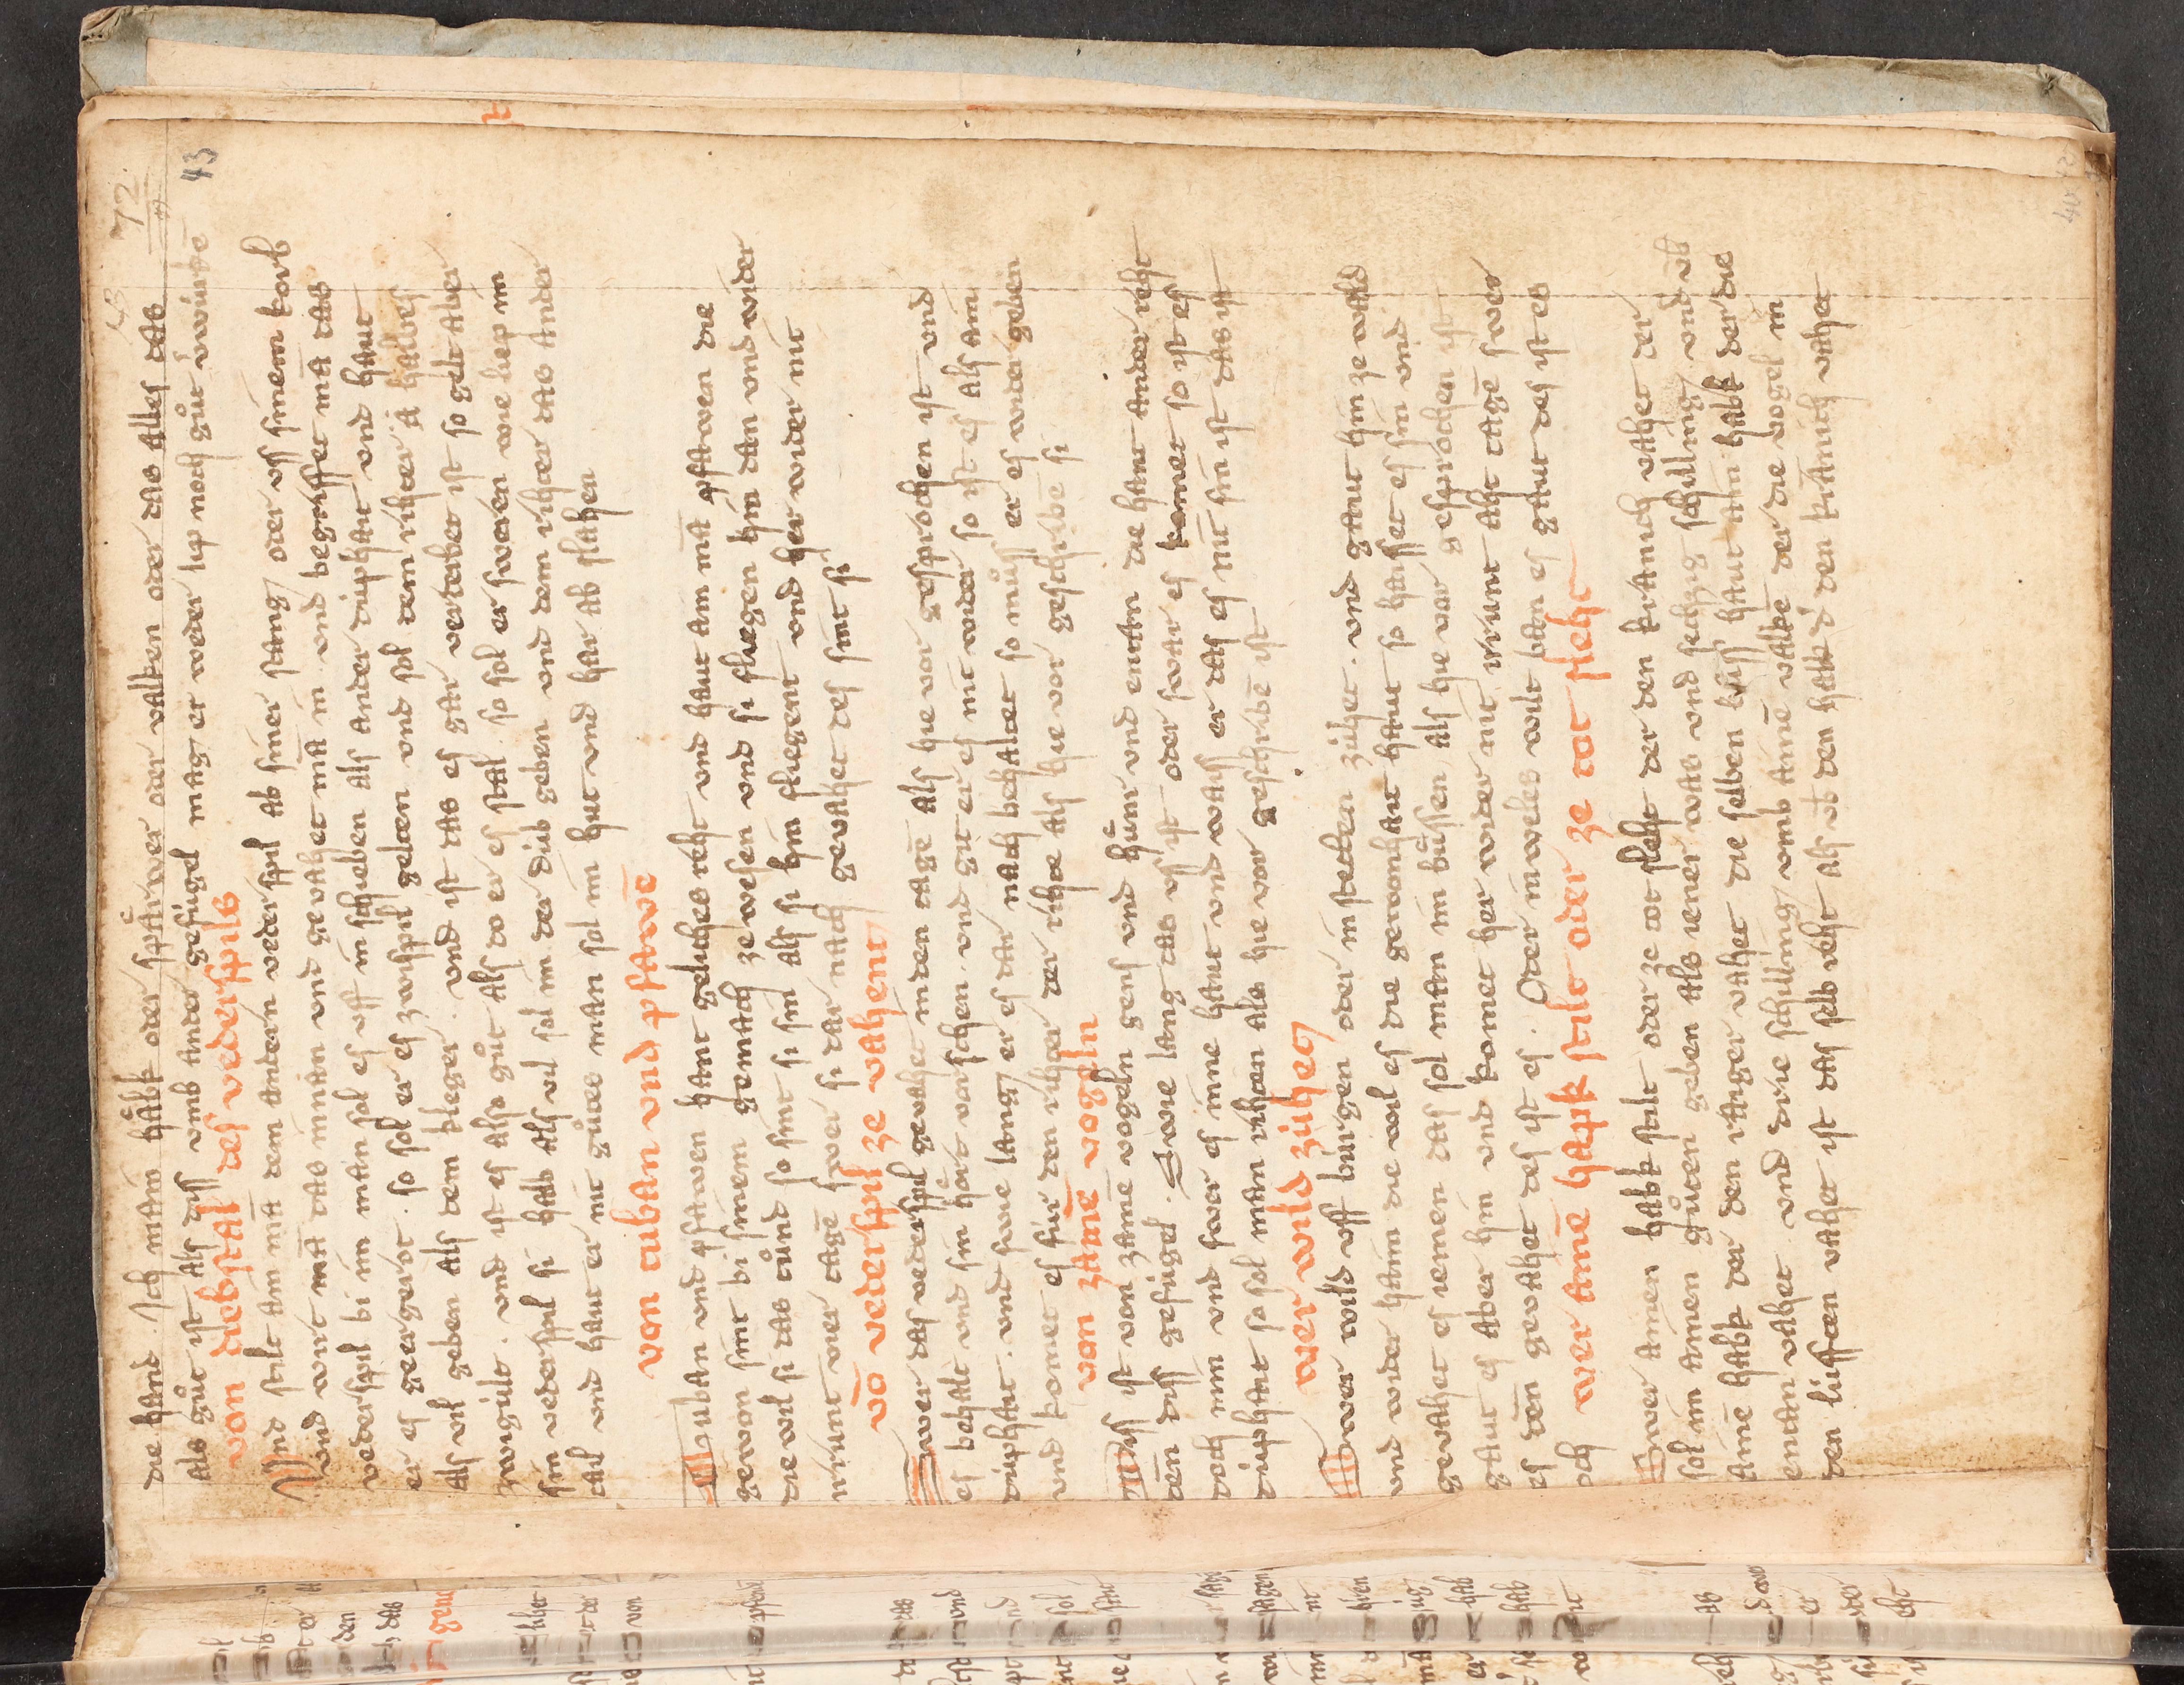 72
43
die hand . Ich main håbk oder spårwer oder valken oder das alles das
als gůt ist als diss vmb ander gefúgel mag er weder lip noch gůt v̓wúrkē
von diebstal des vederspils
Vnd stilt aim mā dem andern vederspil ab siner stang oder vss sinem korb
vnd wirt mā das innan vnd gevahet mā in vnd begriffet mā das
vederspil bi im man sol es vff in schieben als ander diuphait vnd hant
er es geergerot . so sol er es zwispil gelten vnd sol dem rihter ā halbes
als vil geben als dem kleger . vnd ist das es gar verderbet ist so gelt aber
zwigúlt . vnd ist es also gůt als do er es stal so sol er sweren wie liep im
sin vederspil si halb als vil sol im der diub geben vnd dem rihter das ander
tail vnd hant er nit gůtes man sol im hut vnd har ab slahen
von tuban vnd pfawē
Tuban vnd pfawen hant geliches reht vnd hant aim mā pfawen die
gewon sint bi sinem gemach ze wesen vnd si fliegen hin dan vnd wider
die wil si das tůnd so sint si sin als si hin fliegent vnd her wider nit
niemt vier tage swer si dar nach gevahet des sint si
vō vederspil ze vahent
Swer das vederspil gevahet in den tagē als hie vor gesprochen ist vnd
es behalt vnd sin hört vorschen vnd git er es nit wider so ist es als ain
diuphait . vnd swie lang er es dar nach behaltet so můss er es wider geben
vnd komet es fúr den rihter der rihte als hie vor geschribē si
von zamē vogeln
Diss ist von zamē vogeln gens vnd hůnr vnd enttan die hant ander reht
dēn diss gefúgel . Swie lang das vss ist oder swar es komet so ist es
doch min vnd swer es inne hant vnd waiss er das es nit sin ist das ist
diuphait so sol man rihten als hie vor geschribē ist
wer wild zúhet
Swer wild vff burgen oder in steten zúhet . vnd gant hin ze wald
vnd wider haim die wil es die gewonhait hant so haisset es sin vnd
gevahet es iemen das sol man im bůssen als hie vor gesprochen ist
gant es aber hin vnd komet her wider nit niemt aht tagē swer
es dēn gevahet des ist es . Oder in weles wilt ban es gant des ist es
och
wer aimē hapk stilt oder ze tot sleht
Swer ainen habk stilt oder ze tot sleht der den kranich vahet der
sol im ainen gůten geben als iener was vnd sechzig schilling vnd vb
ainē habk der den raiger vahet die selben bůss hant ain habk der die
entan vahet vnd drie schilling vmb ainē valkē der die vogel in
den lúften vahet ist das selb reht als vb den habk d' den kranich vahet